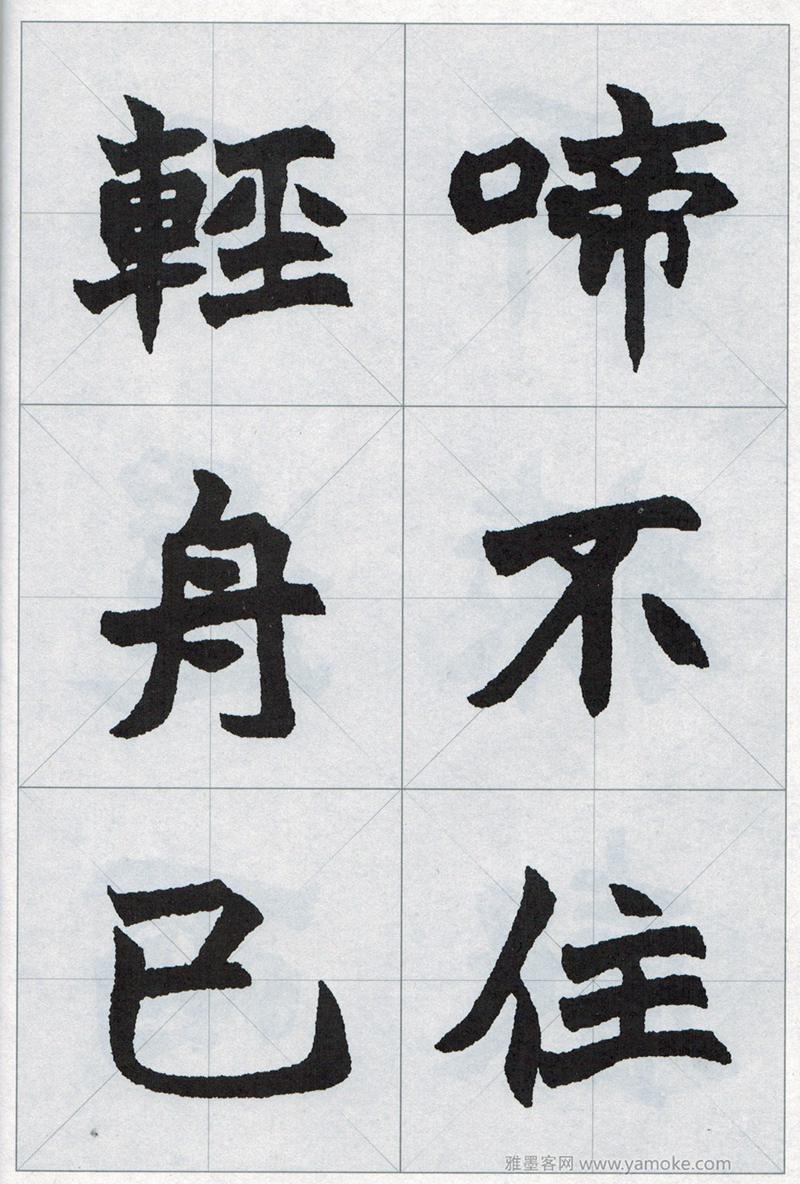 啼不住
輕舟已
雅墨客网 www.yamoke.com